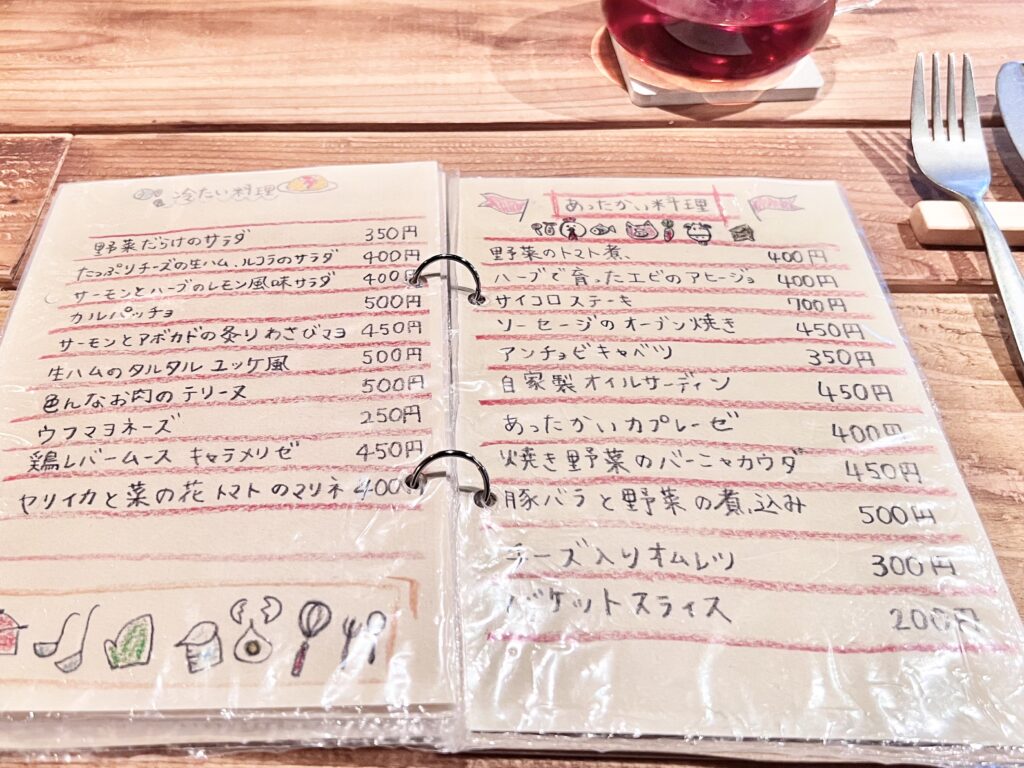 冷たい料理
野菜だらけのサラダ 350円
たっぷりチーズの生ハム、ルコラのサラダ 400円
サーモンとハーブのレモン風味サラダ 400円
カルパッチョ 500円
サーモンとアボカドの炙りわさびマヨ 450円
生ハムのタルタル ユッケ風 500円
色んなお肉のテリーヌ 500円
ウフマヨネーズ 250円
鶏レバームース キャラメリゼ 450円
ヤリイカと菜の花トマトのマリネ 400
あったかい料理
野菜のトマト煮、 400円
ハーブで育ったエビのアヒージョ 400円
サイコロステーキ 700円
ソーセージのオーブン焼き 450円
アンチョビキャベツ 350円
自家製オイルサーディン 450円
あったかいカプレーゼ 400円
焼き野菜のバーニャカウダ 450円
豚バラと野菜の煮込み 500円
チーズ入りオムレツ 300円
バケットスライス 200円